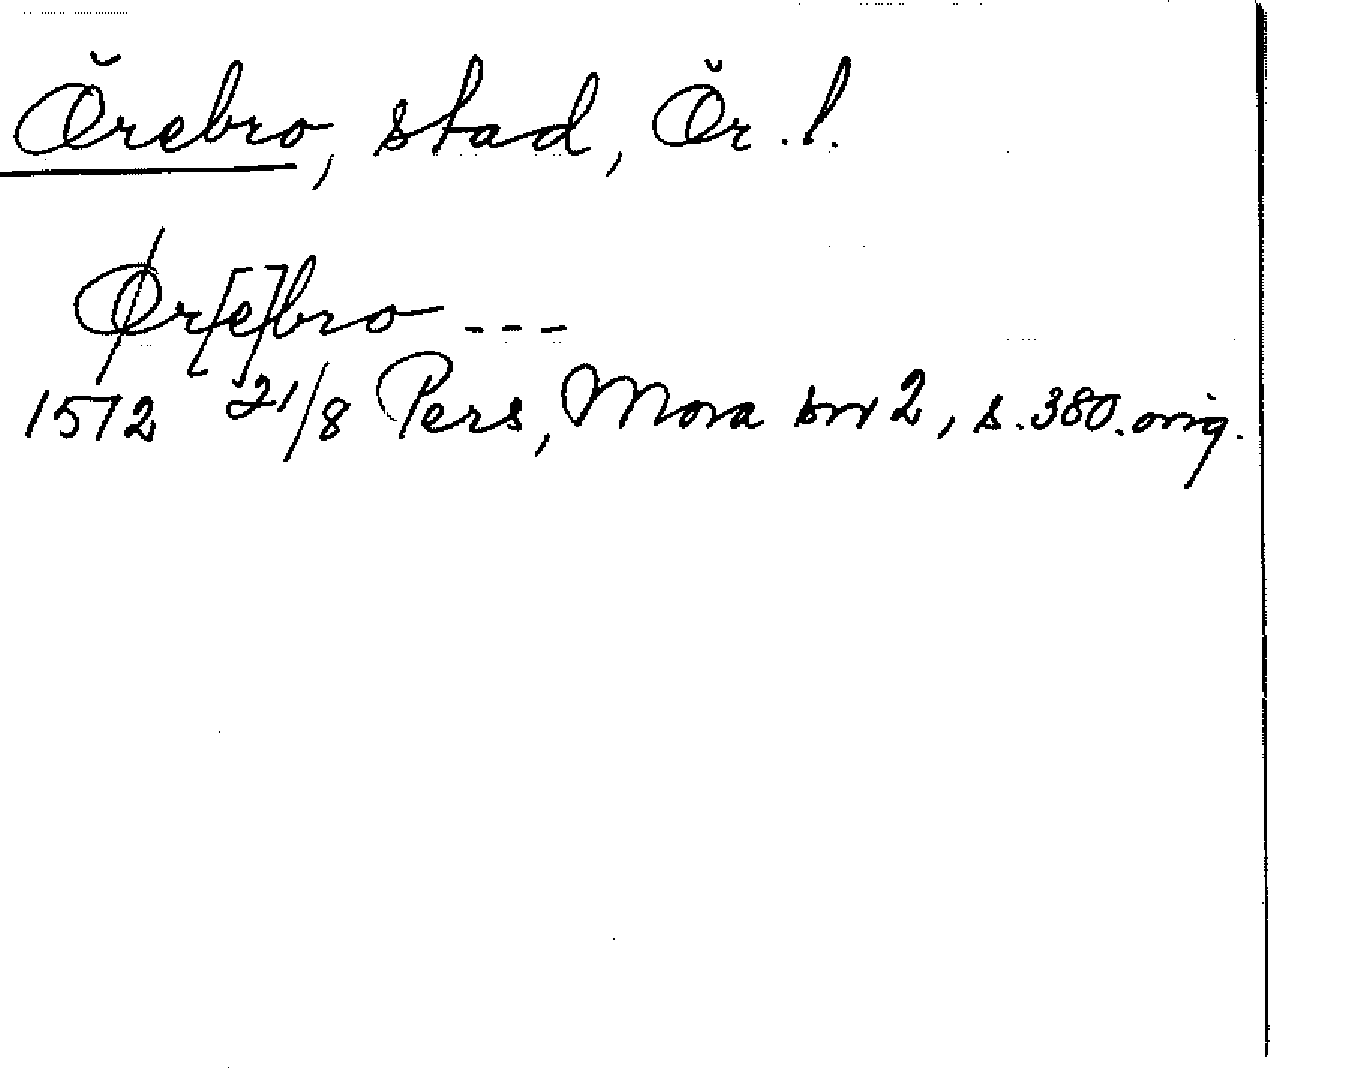 Örebro, stad, Ör. l.
Ør[e]bro ---
1572 21/8 Pers, Mora br 2, s. 380. orig.